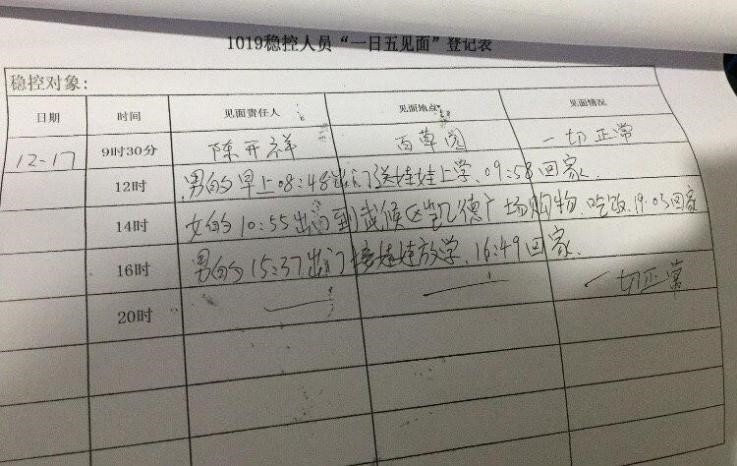 1019稳控人员“一日五见面”登记表
稳控对象：
日期 时间 见面责任人 见面地点 见面情况
12-17 9时30分 陈开祥 百草园 一切正常
12时 男的早上08:48出门送娃娃上学、09:58回家.
14时 女的10:55出门到武候区凯德广场购物、吃饭,19:05回家
16时 男的15:37出门接娃娃放学、16:49回家.
20时 一切正常